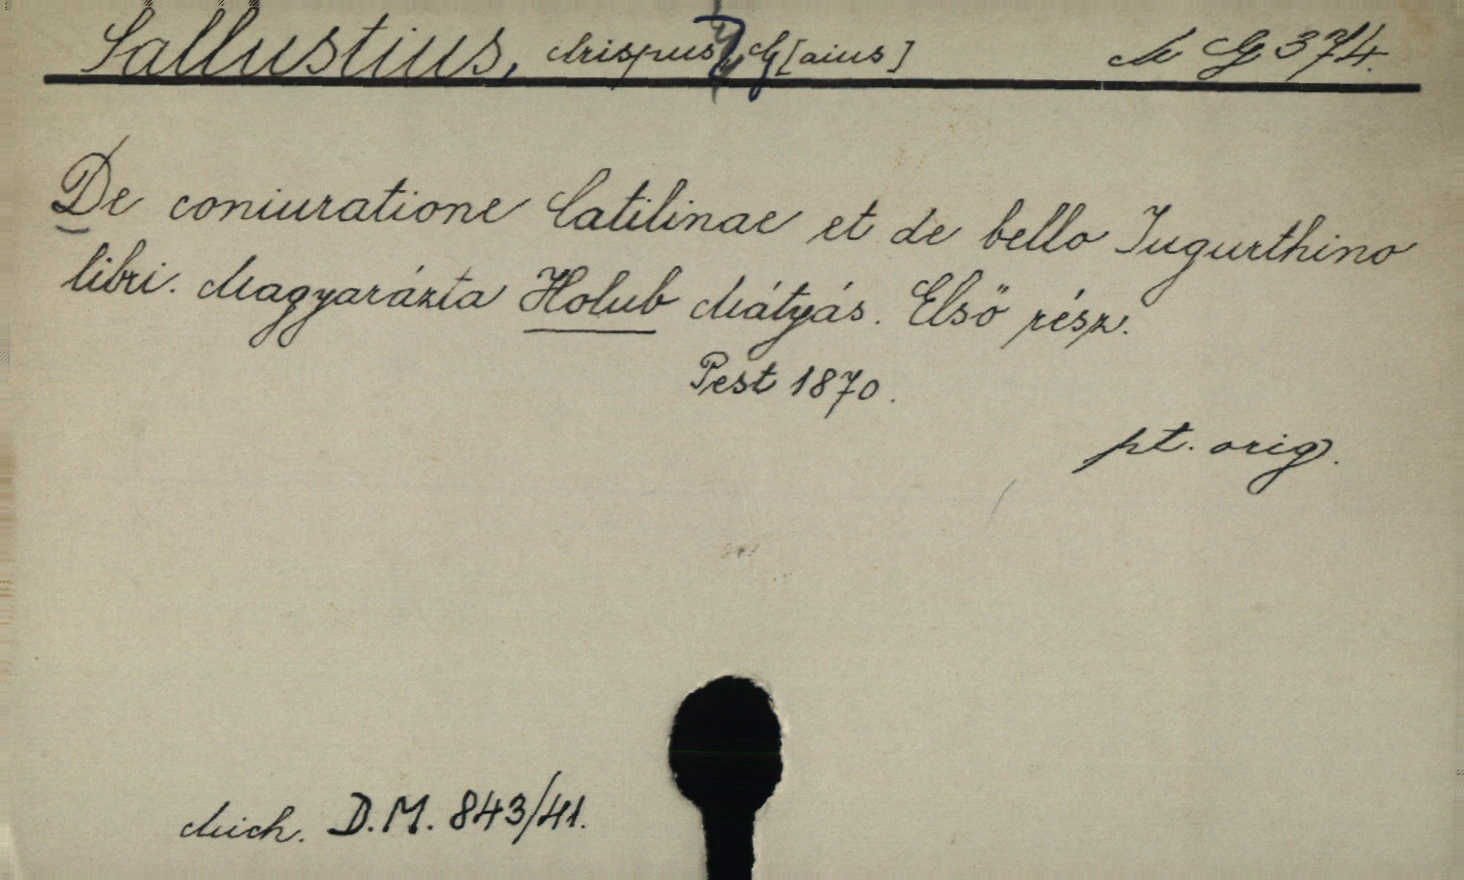 Sallustius, Crispus, G[aius] M G 374.
De coniuratione Catilinae et de bello Iugurthino
libri. Magyarázta Holub Mátyás. Első rész.
Pest 1870.
pt. orig.
Mich. D.M. 843/41.